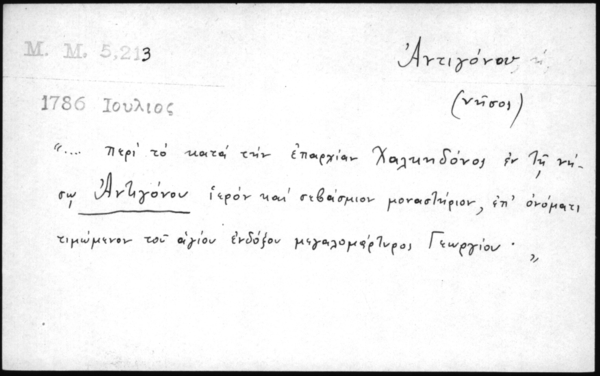 Μ. Μ. 5,213
Ἀντιγόνου, ἡ,
(νῆσος)
1786 Ιουλιος
"... περί τό κατά τήν ἐπαρχίαν Χαλκηδόνος ἐν τῇ νή-
σῳ Ἀντιγόνου ἱερόν καί σεβάσμιον μοναστήριον, ἐπ' ὀνόματι
τιμώμενον τοῦ ἁγίου ἐνδόξου μεγαλομάρτυρος Γεωργίου. "